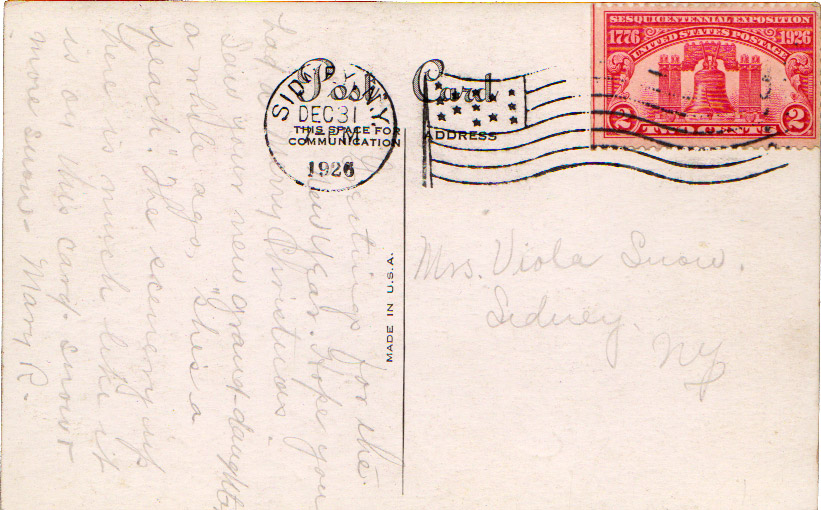 Post Card
THIS SPACE FOR COMMUNICATION
ADDRESS
MADE IN U.S.A.
SIDNEY, N.Y.
DEC 31
M
1926
SESQUICENTENNIAL EXPOSITION
1776 1926
UNITED STATES POSTAGE
2 TWO CENTS 2
Mrs. Viola Snow.
Sidney.
NY
Greetings for the
New Year. Hope you
had a Merry Christmas.
Saw your new grand-daughter,
a night ago, "She's a
peach." The scenery up
here is much like it
is on this card. snow +
more snow - Mary R.